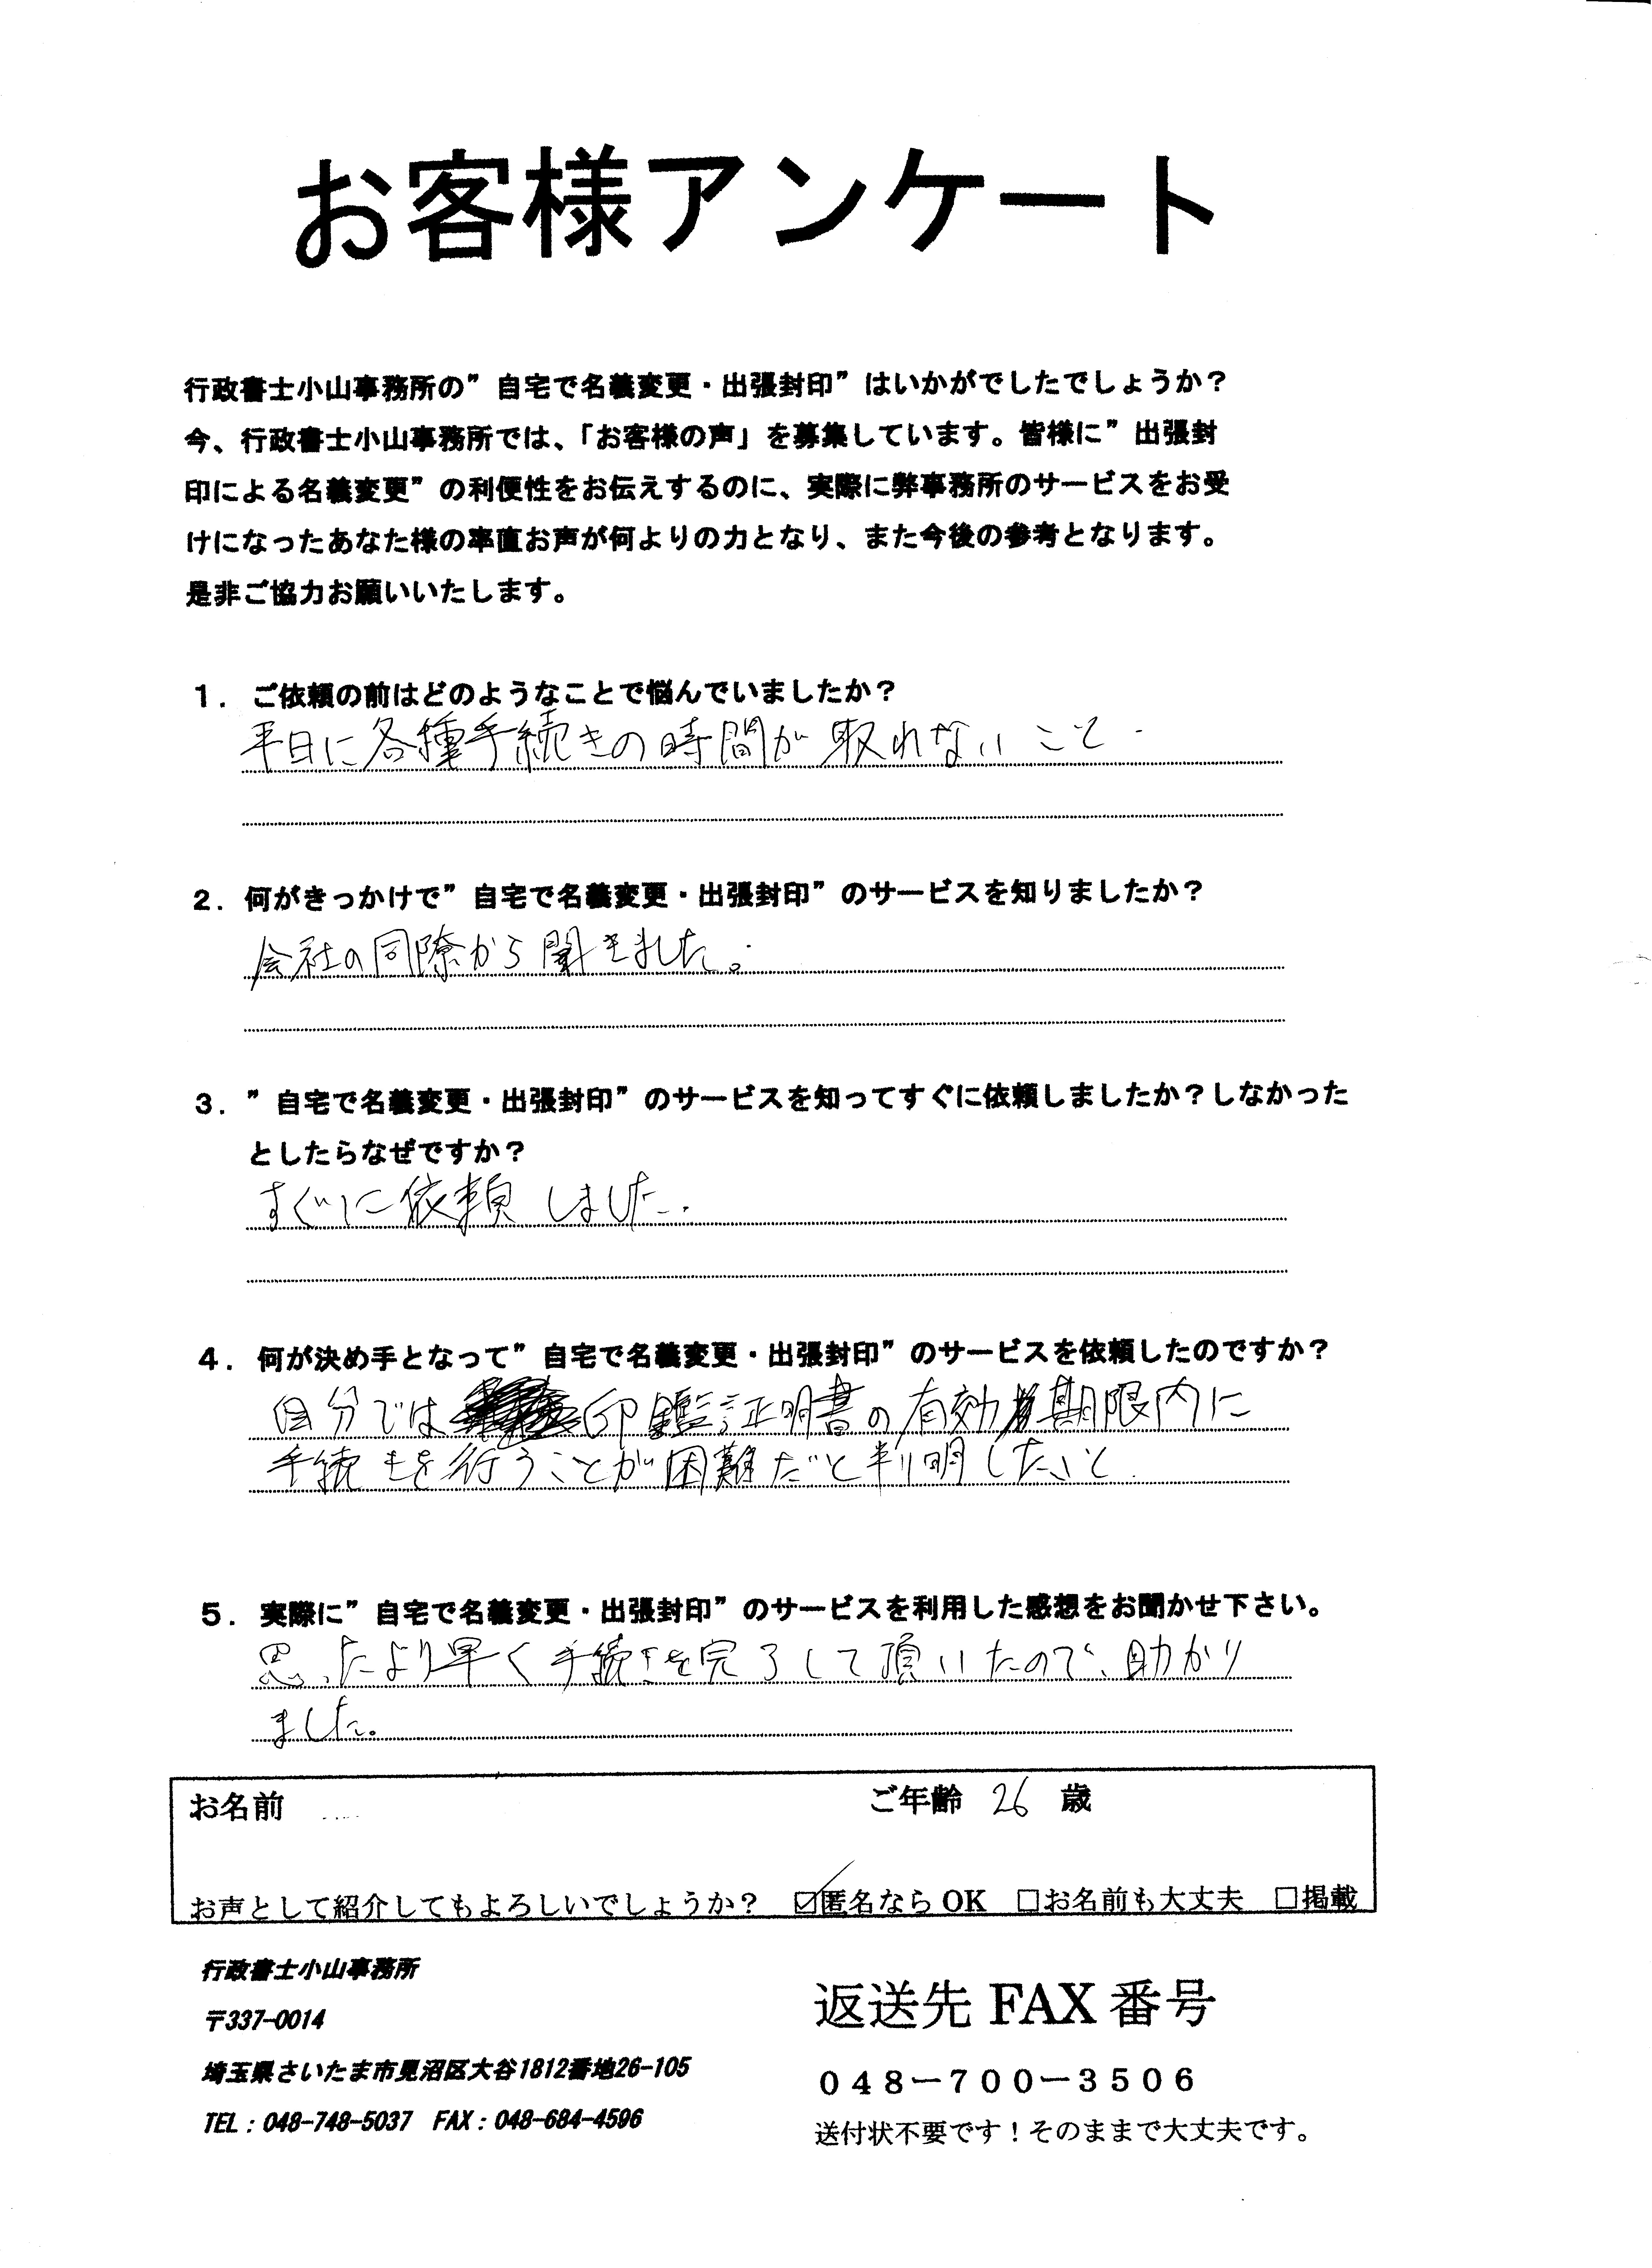 お客様アンケート
行政書士小山事務所の”自宅で名義変更・出張封印”はいかがでしたでしょうか？
今、行政書士小山事務所では、「お客様の声」を募集しています。皆様に”出張封
印による名義変更”の利便性をお伝えするのに、実際に弊事務所のサービスをお受
けになったあなた様の率直お声が何よりの力となり、また今後の参考となります。
是非ご協力お願いいたします。
１．ご依頼の前はどのようなことで悩んでいましたか？
平日に各種手続きの時間が取れないこと．
２．何がきっかけで”自宅で名義変更・出張封印”のサービスを知りましたか？
会社の同僚から聞きました。
３．”自宅で名義変更・出張封印”のサービスを知ってすぐに依頼しましたか？しなかった
としたらなぜですか？
すぐに依頼しました．
４．何が決め手となって”自宅で名義変更・出張封印”のサービスを依頼したのですか？
自分では印鑑証明書の有効期限内に
手続きを行うことが困難だと判明したこと．
５．実際に”自宅で名義変更・出張封印”のサービスを利用した感想をお聞かせ下さい。
思ったより早く手続きを完了して頂いたので、助かり
ました。
お名前 ご年齢 26 歳
お声として紹介してもよろしいでしょうか？ ☑匿名なら OK □お名前も大丈夫 □掲載
行政書士小山事務所
〒337-0014
埼玉県さいたま市見沼区大谷1812番地26-105
TEL：048-748-5037 FAX：048-684-4596
返送先 FAX 番号
０４８－７００－３５０６
送付状不要です！そのままで大丈夫です。